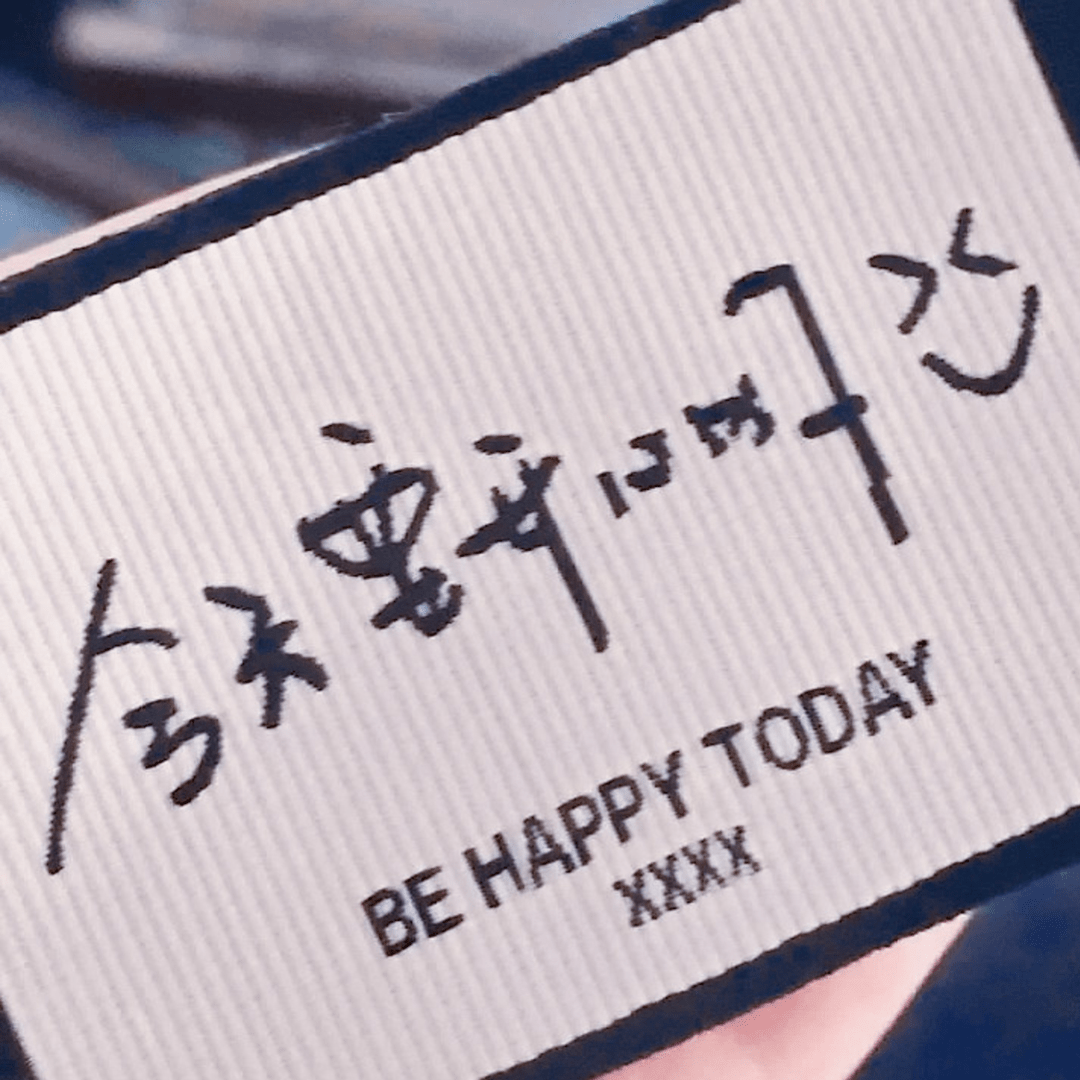 今天要开心
BE HAPPY TODAY
XXXX